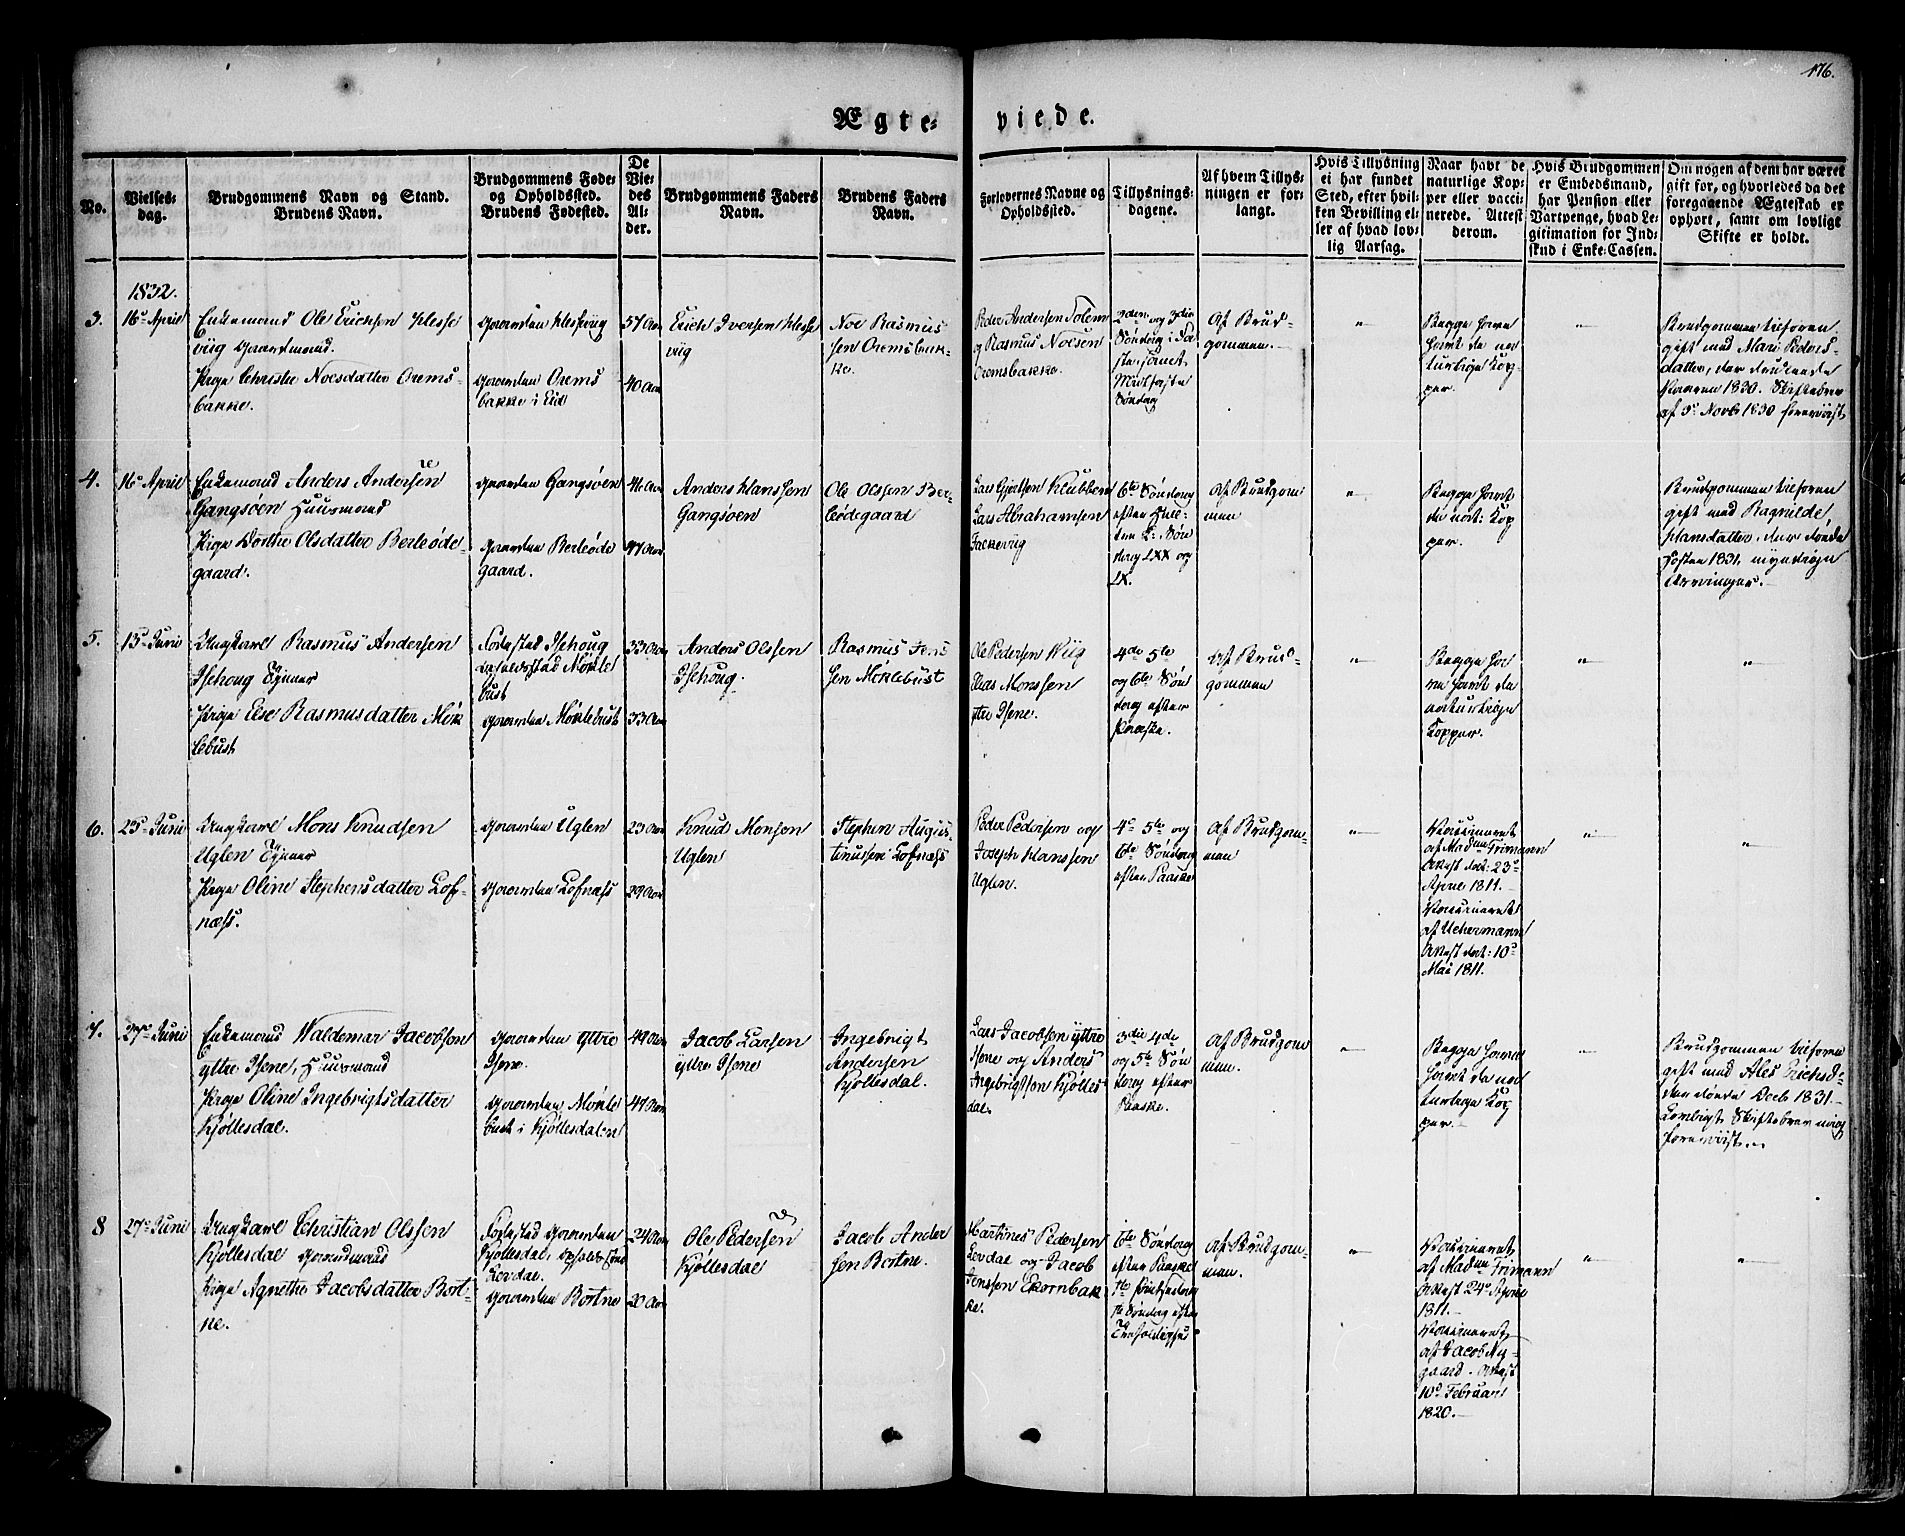 176.
Ægte-
viede.
No.
Vielses-
dag.
Brudgommens Navn og Stand.
Brudens Navn.
Brudgommens Føde-
og Opholdssted.
Brudens Fødested.
De
Vie-
des
Al-
der.
Brudgommens Faders
Navn.
Brudens Faders
Navn.
Forlovernes Navne og
Opholdssted.
Tillysnings-
dagene.
Af hvem Tillys-
ningen er for-
langt.
Hvis Tillysning
ei har fundet
Sted, efter hvil-
ken Bevilling el-
ler af hvad lov-
lig Aarsag.
Naar havt de
naturlige Kop-
per eller vacci-
nerede. Attest
derom.
Hvis Brudgommen
er Embedsmand,
har Pension eller
Vartpenge, hvad Le-
gitimation for Ind-
skud i Enke-Cassen.
Om nogen af dem har været
gift før, og hvorledes da det
foregaaende Ægteskab er
ophørt, samt om lovligt
Skifte er holdt.
1832.
3.
16de April
Enkemand Ole Erichsen Hesse
viig Gaardmand.
Pige Christie Noesdatter Orems-
bakke.
Gaarden Hessevig
Gaarden Orems
bakke i Eid
57 Aar
40 Aar
Erich Iversen Hesse
viig
Noe Rasmus
sen Oremsbak-
ke.
Peder Andersen Solem
og Rasmus Noesen
Oremsbakke.
2den og 3die
Søndag i Fa
ste, samt
Midfaste
Søndag
Af Brud-
gommen.
"
Begge have
havt de na
turlige Kop
per.
"
Brudgommen tilforen
gift med Mari Peders-
datter, der døde
Aaren 1830. Skiftebrev
af 5te Novb 1830 foreviist.
4.
16de April
Enkemand Anders Andersen
Gangsøen Huusmand
Pige Dorthe Olsdatter Berleøde-
gaard.
Gaarden Gangsøen
Gaarden Berleøde
gaard.
46 Aar
47 Aar
Anders Hanssen
Gangsøen
Ole Olssen Ber-
leødegaard
Lars Gjertsen Klubben
Lars Abrahamsen
6te Søndag
efter Hel-
Søn
dag LXX og
LX.
af Brudgom
men
"
Begge havt
de nat: Kop
per.
Brudgommen tilforen
gift med Ragnilde
Hansdatter, der døde
Høsten 1831, myndige
Arvinger.
5.
15de Juni
Ungkarl Rasmus Andersen
Isehoug
Pige Else Rasmusdatter Møk
lebust
Fødested Isehoug
Opholdssted Møkle
bust
Gaarden Møklebust
33 Aar
33 Aar
Anders Olssen
Isehoug.
Rasmus Jens
sen Møklebust
Ole Pedersen Wiig
Elias Monssen
ytre Isene.
4de 5te
og 6te Søn
dag efter
Paaske.
af Brud-
gommen
"
Begge ha
ve havt de
naturlige
Kopper.
"
"
6.
25de Juni
Ungkarl Mons Knudsen
Uglen
Pige Oline Stephensdatter Lof-
næss.
Gaarden Uglen
Gaarden Lofnæss
23 Aar
29 Aar
Knud Monsen
Uglen
Stephen Augus-
tinussen Lofnæss
Peder Pedersen og
Joseph Hanssen
Uglen.
4de 5te og
6te Søndag
efter Paaske
af Brudgom-
men
"
Vaccineret
af Madme Frimann
Attest dat: 23de
April 1811.
Vaccineret
af Uchermann
Attest dat: 10de
Mai 1811.
"
"
7.
27de Juni
Enkemand Waldemar Jacobsen
ytre Isene, Huusmand
Pige Oline Ingebrigtsdatter
Kjøllesdal.
Gaarden Yttre
Isene.
Gaarden Møkle
bust i Kjøllesdalen
49 Aar
41 Aar
Jacob Larsen
yttre Isene
Ingebrigt
Andersen
Kjøllesdal.
Lars Jacobsen yttre
Isene og Anders
Ingebrigtsen Kjølles
dal.
3die 4de
og 5te Søn
dag efter
Paaske.
af Brudgom
men.
"
Begge have
havt de na
turlige Kop
per.
"
Brudgommen tilforen
gift med Ales Erichsd-
der døde Decb 1831.
Lovligt Skiftebrev
foreviist.
8
27de Juni
Ungkarl Christian Olssen
Kjøllesdal Gaardmand
Pige Agnethe Jacobsdatter Bort-
ne.
Fødested Gaarden
Kjøllesdal, Opholdssted
Levdal.
Gaarden Bortne
24 Aar
20 Aar
Ole Pedersen
Kjøllesdal
Jacob Ander
sen Bortne.
Martinus Pedersen
Levdal og Jacob
Jenssen Ekornbak
ke.
6te Søndag
efter Paaske
1te Pintsedag
1te Søndag efter
af Brudgom-
men.
"
Vaccineret
af Madme Frimann
Attest 24de April
1811.
Vaccineret
af Jacob Ny-
gaard. Attest
10de Februari
1820.
"
"